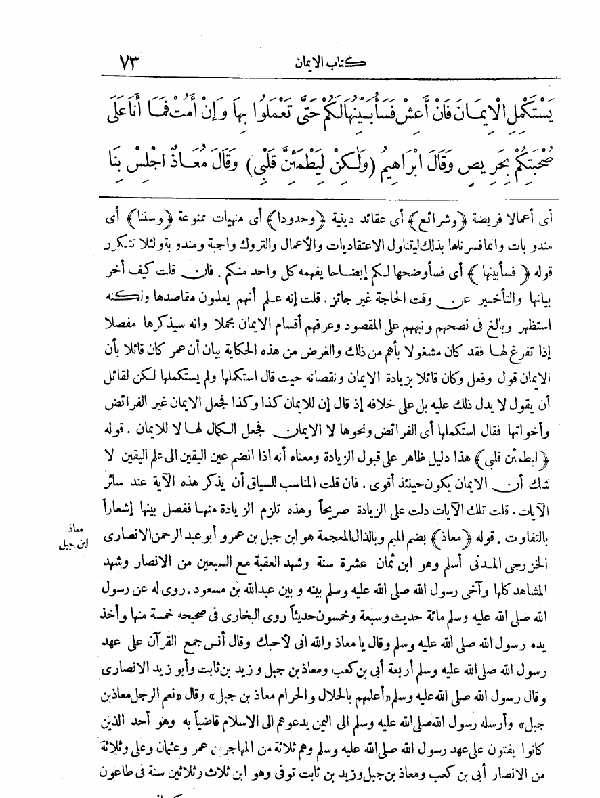 كتاب الايمان ٧٣
يَسْتَكْمِلِ الْإِيمَانَ فَانْ أَعِشْ فَسَأُبَيِّنُهَا لَكُمْ حَتَّى تَعْمَلُوا بِهَا وَإِنْ أَمُتْ فَمَا أَنَا عَلَى
صُحْبَتِكُمْ بِحَرِيصٍ وَقَالَ ابْرَاهِيمُ (وَلَكِنْ لِيَطْمَئِنَّ قَلْبِي) وَقَالَ مُعَاذٌ اجْلِسْ بِنَا
أى أعمالا فريضة ﴿وشرائع﴾ أى عقائد دينية ﴿وحدودا﴾ أى منهيات ممنوعة ﴿وسننا﴾ أى
مندوبات وانما فسرناها بذلك ليتناول الاعتقاديات والأعمال والتروك واجبة ومندوبة ولئلا تتكرر
قوله ﴿فسأبينها﴾ أى فسأوضحها لكم إيضاحا يفهمه كل واحد منكم. فان قلت كيف أخر
بيانها والتأخير عن وقت الحاجة غير جائز. قلت إنه علم أنهم يعلمون مقاصدها ولكنه
استظهر وبالغ فى نصحهم ونبههم على المقصود وعرفهم أقسام الايمان مجملا وانه سيذكرها مفصلا
إذا تفرغ لها فقد كان مشغولا بأهم من ذلك والغرض من هذه الحكاية بيان أن عمر كان قائلا بأن
الايمان قول وفعل وكان قائلا بزيادة الايمان ونقصانه حيث قال استكملها ولم يستكملها لكن لقائل
أن يقول لا يدل ذلك عليه بل على خلافه إذ قال إن للايمان كذا وكذا فجعل الايمان غير الفرائض
وأخواتها فقال استكملها أى الفرائض ونحوها لا الايمان فجعل الكمال لها لا للايمان. قوله
﴿ليطمئن قلبى﴾ هذا دليل ظاهر على قبول الزيادة ومعناه أنه اذا انضم عين اليقين الى علم اليقين لا
شك أن الايمان يكون حينئذ أقوى. فان قلت المناسب للسياق أن يذكر هذه الآية عند سائر
الآيات. قلت تلك الآيات دلت على الزيادة صريحاً وهذه تلزم الزيادة منها ففصل بينها إشعاراً
بالتفاوت. قوله ﴿معاذ﴾ بضم الميم وبالذال المعجمة هو ابن جبل بن عمرو أبو عبد الرحمن الانصارى
معاذ
ابن جبل
الخزرجى المدنى أسلم وهو ابن ثمان عشرة سنة وشهد العقبة مع السبعين من الانصار وشهد
المشاهد كلها وآخى رسول الله صلى الله عليه وسلم بينه وبين عبدالله بن مسعود. روى له عن رسول
الله صلى الله عليه وسلم مائة حديث وسبعة وخمسون حديثاً روى البخارى فى صحيحه خمسة منها وأخذ
يده رسول الله صلى الله عليه وسلم وقال يا معاذ والله انى لأحبك وقال أنس جمع القرآن على عهد
رسول الله صلى الله عليه وسلم أربعة أبى بن كعب ومعاذ بن جبل وزيد بن ثابت وأبو زيد الانصارى
وقال رسول الله صلى الله عليه وسلم «أعلمهم بالحلال والحرام معاذ بن جبل» وقال «نعم الرجل معاذ بن
جبل» وأرسله رسول الله صلى الله عليه وسلم الى اليمن يدعوهم الى الاسلام قاضياً به وهو أحد الذين
كانوا يفتون على عهد رسول الله صلى الله عليه وسلم وهم ثلاثة من المهاجرين عمر وعثمان وعلى وثلاثة
من الانصار أبى بن كعب ومعاذ بن جبل وزيد بن ثابت توفى وهو ابن ثلاث وثلاثين سنة فى طاعون